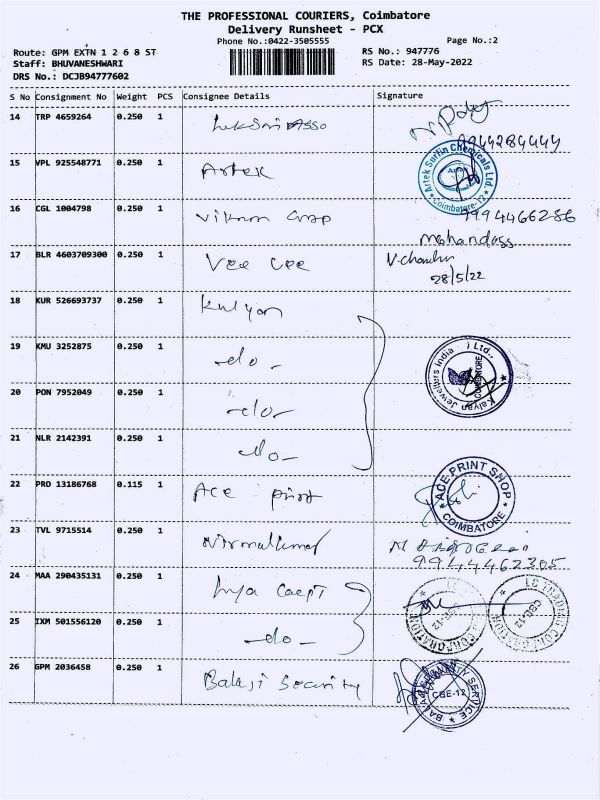 THE PROFESSIONAL COURIERS, Coimbatore
Delivery Runsheet - PCX
Phone No.:0422-3505555
Page No.:2
Route: GPM EXTN 1 2 6 8 ST
RS No.: 947776
Staff: BHUVANESHWARI
RS Date: 28-May-2022
DRS No.: DCJB94777602
S No Consignment No Weight PCS Consignee Details Signature
14 TRP 4659264 0.250 1
9944284444
15 VPL 925548771 0.250 1 Artek
Artek Surfin Chemicals Ltd. * Coimbatore-12 *
16 CGL 1004798 0.250 1 Vikram
9994466286
Mohandoss
17 BLR 4603709300 0.250 1 Vee Cee V.chandru
28/5/22
18 KUR 526693737 0.250 1 Kalyan
19 KMU 3252875 0.250 1 -do-
Kalyan Jewellers India ) Ltd., COIMBATORE
20 PON 7952049 0.250 1 -do-
21 NLR 2142391 0.250 1 -do-
22 PRO 13186768 0.115 1 Ace print
ACE PRINT SHOP * COIMBATORE *
23 TVL 9715514 0.250 1 Nirmalkumar
9944462305
24 MAA 290435131 0.250 1
LG TRADING CORPORATION CBE-12
25 IXM 501556120 0.250 1 -do-
26 GPM 2036458 0.250 1 Balaji Security
CBE-12 SERVICE